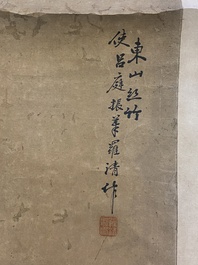 東山丝竹
使呂庭振筆羅清作